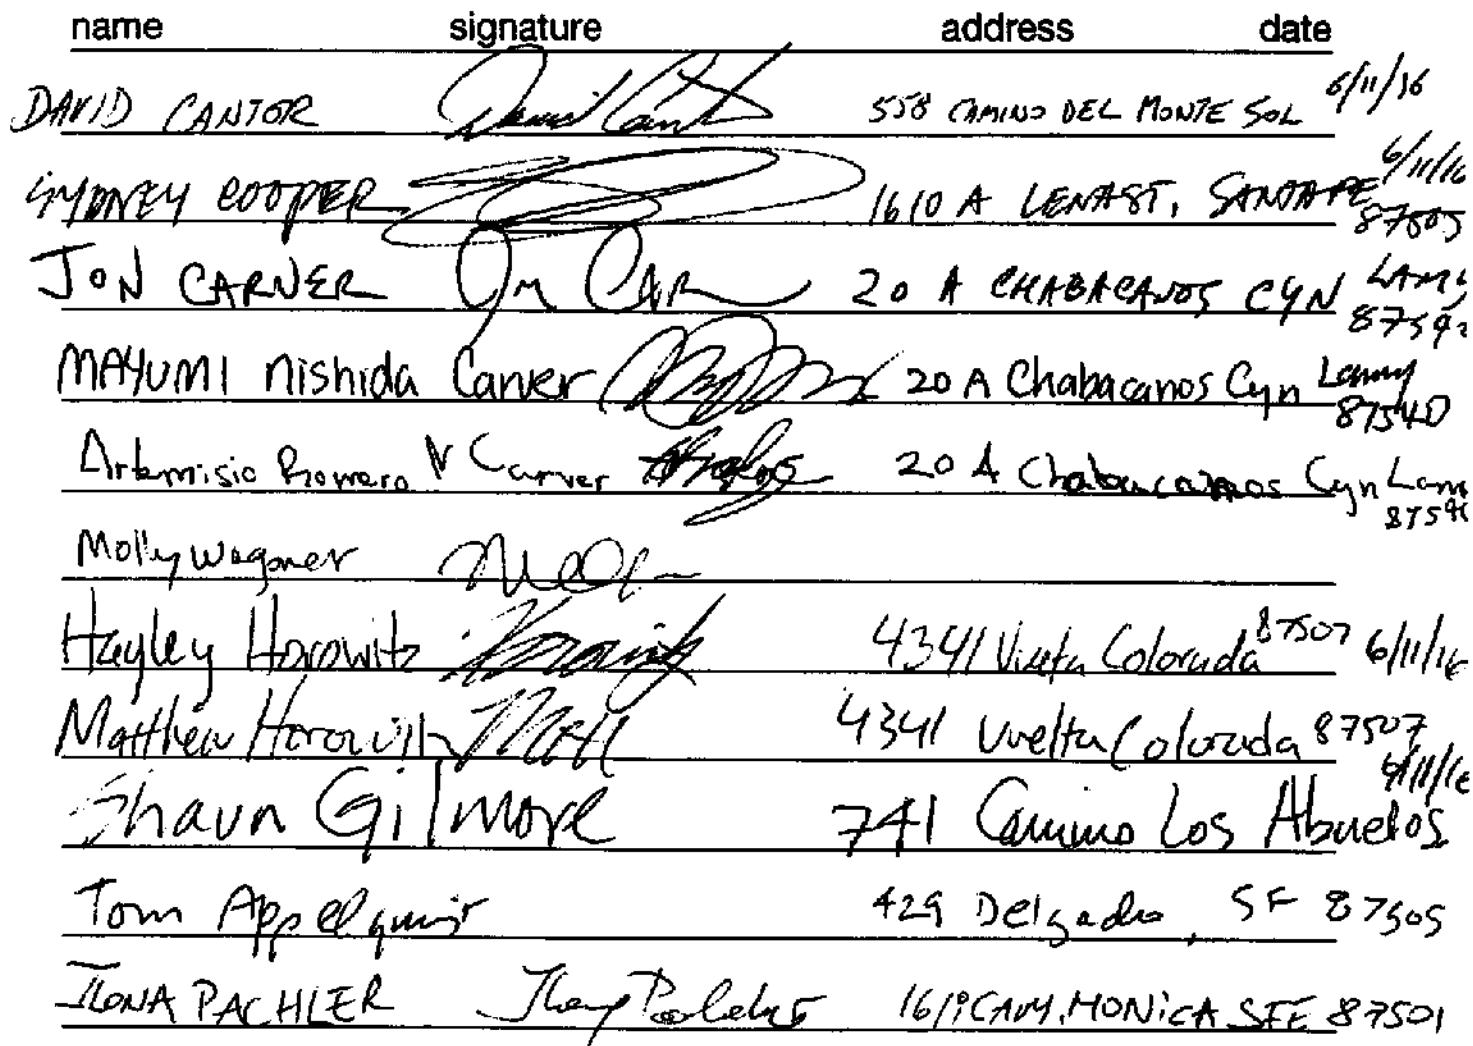 name signature address date
DAVID CANTOR David Cant 558 CAMINO DEL MONTE SOL 6/11/16
SYDNEY COOPER 1610 A LENA ST, SANTA FE 87505 6/11/16
JON CARVER Jon Car 20 A CHABACANOS CYN LAMY
MAYUMI Nishida Carver 20 A Chabacanos Cyn Lamy 87540
Artemisio Romero y Carver 20 A Chabacanos Cyn Lam
Molly Wagoner
Hayley Horowitz Horowitz 4341 Vuelta Colorada 87507 6/11/16
Matthew Horowitz 4341 Vuelta Colorada 87507 6/11/16
Shaun Gilmore 741 Camino Los Abuelos
Tom Appelquist 429 Delgado, SF 87505
ILONA PACHLER CAM. MONiCA SFE 87501